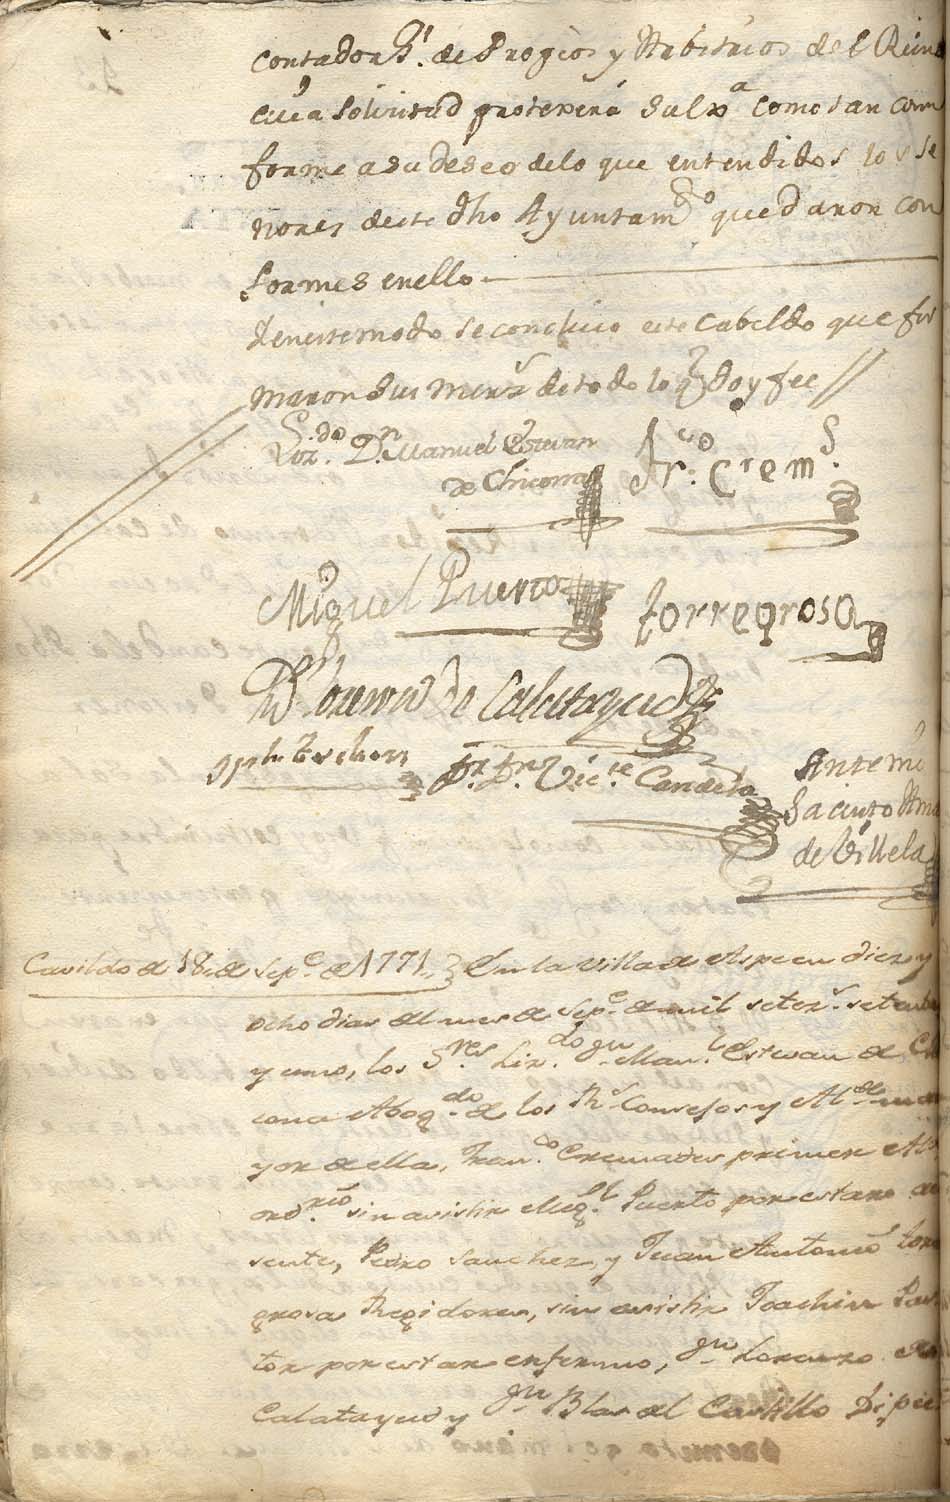 Contador Gl. de Propios y Arbitrios del Rein
cuia solicitud protexerá su Exa. como tan con
forme a su deseo de lo que entendidos los se
ñores deste dho Ayuntamto. quedaron con
formes en ello
Y en este modo se concluio este Cabildo que fir
maron sus mercs. de todo lo q. doy fee
Lizdo. Dn. Manuel Estevan
de Chicona
Franco. Crems.
Miguel Puerto
Torregrosa
Dn. Lorenzo de Calatayud
Dr. Dn. Victe. Candela
Ante mi
Jacinto Ama
de Villela
Cavildo de 18 de Sepe. de 1771
En la Villa de Aspe en diez y
ocho dias del mes de Sepe. de mil setezs. setenta
y uno, los Sres. Lizdo. dn. Manl. Estevan de Chi
cona Abogdo. de los Rs. Consejos y Alcde. ma
yor de ella, Franco. Cremades primer Al
ordrio. sin asistir Migl. Puerto por estar au
sente, Pedro Sanchez, y Juan Antonio Torre
grosa Regidores, sin asistir Joachin Pas
tor por estar enfermo, dn. Lorenzo de
Calatayud y dn. Blas del Castillo Dipu